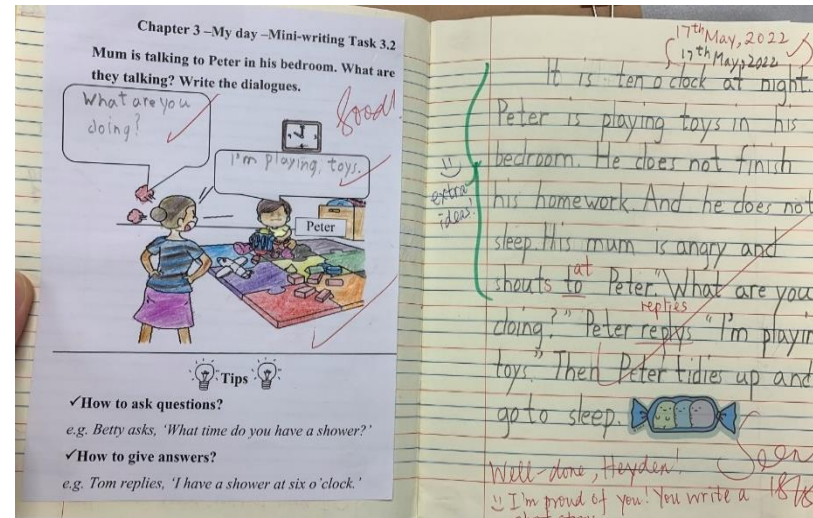 Chapter 3 –My day –Mini-writing Task 3.2
Mum is talking to Peter in his bedroom. What are
they talking? Write the dialogues.
What are you
doing?
Good!
I'm playing, toys.
Peter
Tips
✓How to ask questions?
e.g. Betty asks, 'What time do you have a shower?'
✓How to give answers?
e.g. Tom replies, 'I have a shower at six o'clock.'
17th May, 2022
17th May, 2022
It is ten o clock at night.
Peter is playing toys in his
bedroom. He does not finish
extra
ideas!
his homework. And he does not
sleep. His mum is angry and
at
shouts to Peter "What are you
replies
doing?" Peter replys "I'm playin
toys" Then Peter tidies up and
go to sleep.
Seen
Well-done, Heyden!
I'm proud of you! You write a
18/5